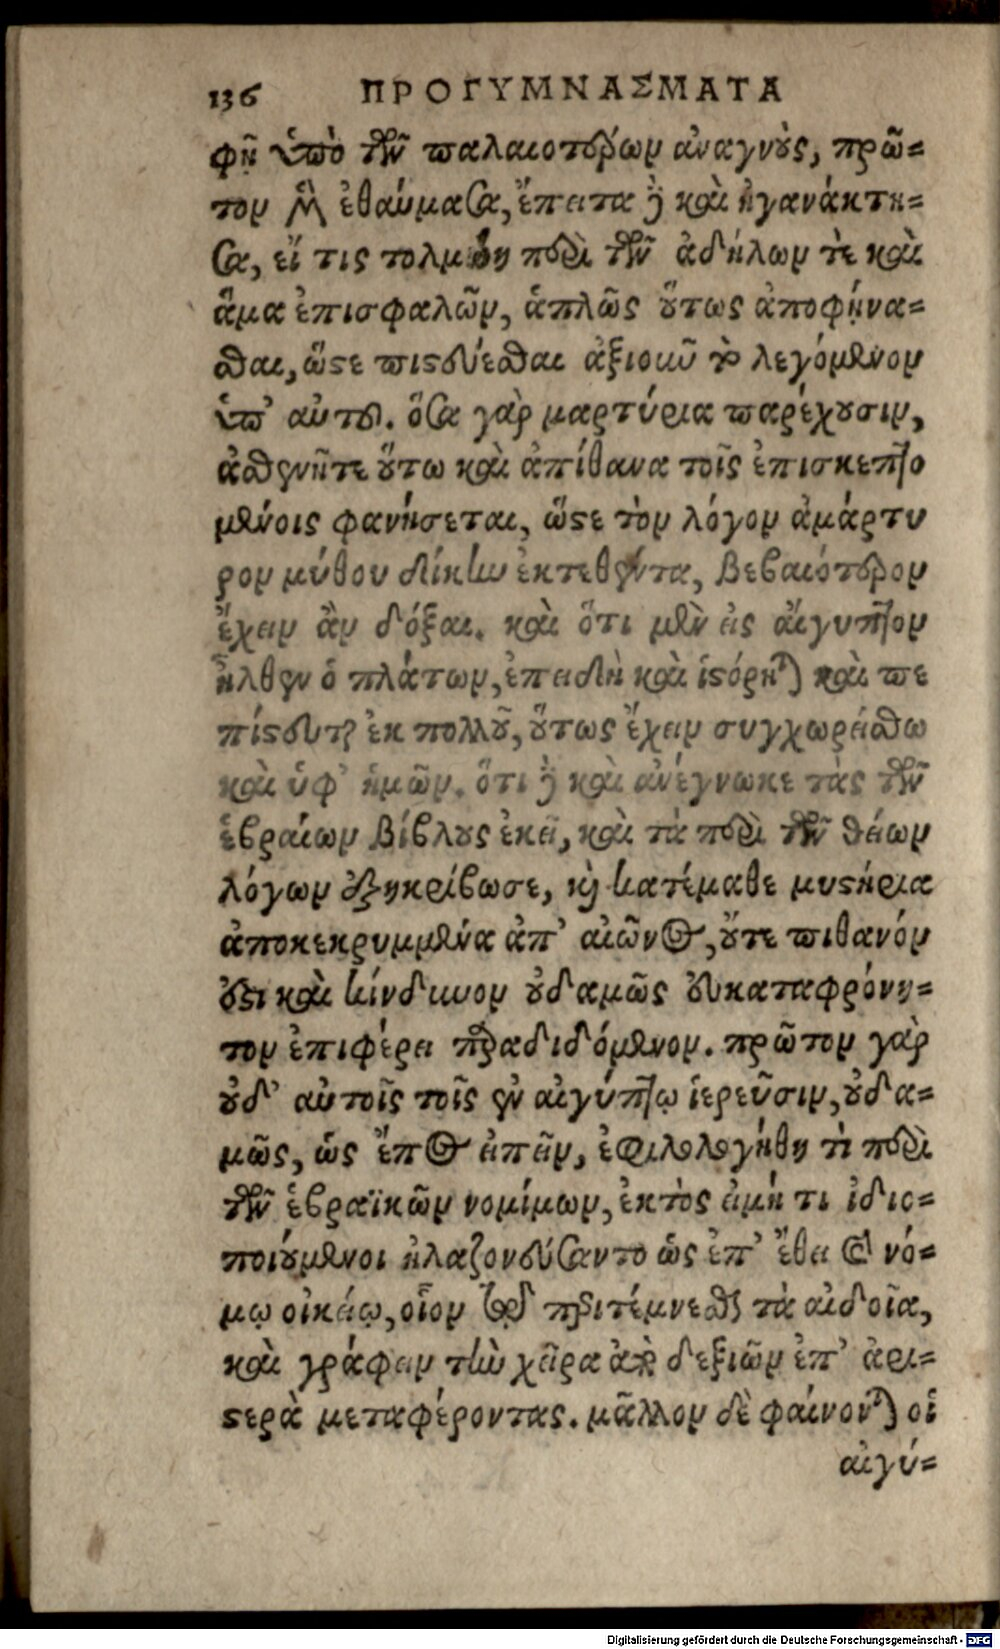 136 ΠΡΟΓΥΜΝΑΣΜΑΤΑ
φῇ ὑπὸ τῶν παλαιοτέρων ἀναγνοὺς, πρῶ=
τον μὲν ἐθαύμασα, ἔπειτα δὲ καὶ ἠγανάκτη=
σα, εἴ τις τολμώη περὶ τῶν ἀδήλων τὲ καὶ
ἅμα ἐπισφαλῶν, ἁπλῶς οὕτως ἀποφῄνα=
σθαι, ὥστε πιστεύεσθαι ἀξιοῦν τὸ λεγόμενον
ὑπ' αὐτοῦ. ὅσα γὰρ μαρτύρια παρέχουσιν,
ἀσθενῆ τε οὕτω καὶ ἀπίθανα τοῖς ἐπισκεπτο
μένοις φανήσεται, ὥστε τὸν λόγον ἀμάρτυ
ρον μύθου δίκην ἐκτεθέντα, βεβαιότερον
ἔχειν ἂν δόξαι. καὶ ὅτι μὲν εἰς αἴγυπτον
ἦλθεν ὁ πλάτων, ἐπειδὴ καὶ ἱστόρηται καὶ πε
πίστευται ἐκ πολλοῦ, οὕτως ἔχειν συγχωρείσθω
καὶ ὑφ' ἡμῶν. ὅτι δὲ καὶ ἀνέγνωκε τὰς τῶν
ἑβραίων βίβλους ἐκεῖ, καὶ τὰ περὶ τῶν θείων
λόγων ἐξηκρίβωσε, καὶ κατέμαθε μυστήρια
ἀποκεκρυμμένα ἀπ' αἰῶνος, οὔτε πιθανόν
ἐστι καὶ κίνδυνον οὐδαμῶς εὐκαταφρόνη=
τον ἐπιφέρει παραδιδόμενον. πρῶτον γὰρ
οὐδ' αὐτοῖς τοῖς ἐν αἰγύπτῳ ἱερεῦσιν, οὐδα=
μῶς, ὡς ἔπος εἰπεῖν, ἐφιλολογήθη τὶ περὶ
τῶν ἑβραϊκῶν νομίμων, ἐκτὸς εἰμή τι ἰδιο=
ποιούμενοι ἠλαζονεύσαντο ὡς ἐπ' ἔθει καὶ νό=
μῳ οἰκείῳ, οἷον τὸ περιτέμνεσθαι τὰ αἰδοῖα,
καὶ γράφειν τὴν χεῖρα ἀπὸ δεξιῶν ἐπ' ἀρι=
στερὰ μεταφέροντας. μᾶλλον δὲ φαίνονται οἱ
αἰγύ=
Digitalisierung gefördert durch die Deutsche Forschungsgemeinschaft - DFG